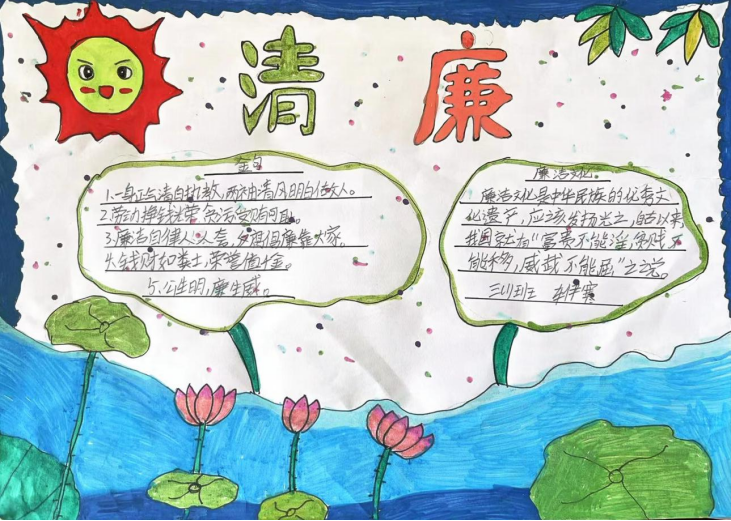 清廉
金句
1.一身正气清白执教,两袖清风明白做人。
2.劳动挣钱光荣
3.廉洁自律人人夸,
4.钱财如粪土,荣誉值千金。
5.公生明,廉生威。
廉洁文化
廉洁文化是中华民族的优秀文
化遗产,应该发扬光之,自古以来
我国就有“富贵不能淫,贫贱不
能移,威武不能屈”之说。